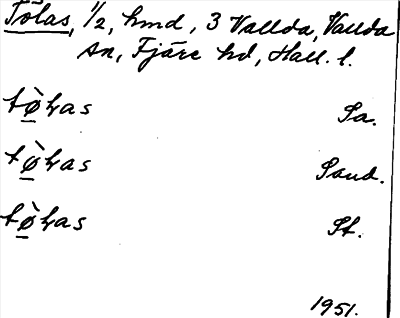 Tölas, 1/2, hmd, 3 Vallda, Vallda
sn, Fjäre hd, Hall. l.
tø̀ɬas Sa.
tø̀ɬas Sand.
tø̀ɬas St.
1951.